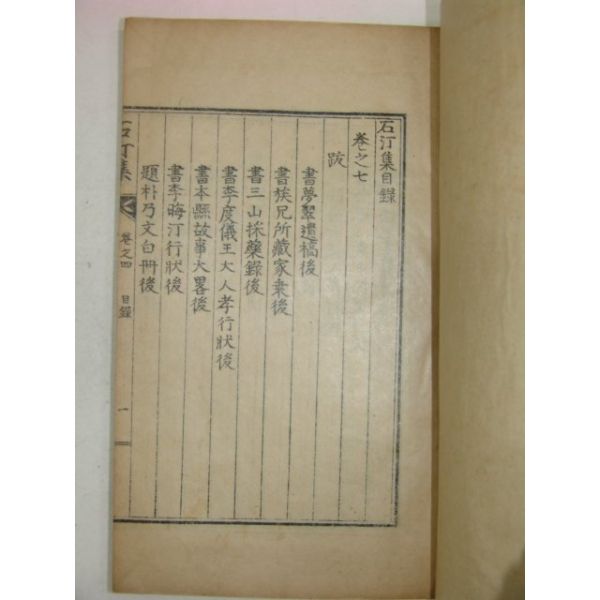 石汀集目錄
卷之七
跋
書夢翠遺稿後
書族兄所藏家乘後
書三山採藥錄後
書李度儀王大人孝行狀後
書本縣故事大畧後
書李晦汀行狀後
題朴乃文白冊後
石汀集 卷之四 目錄 一